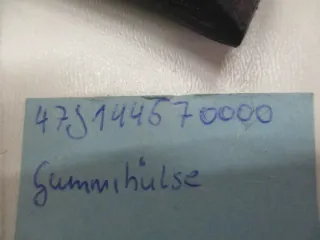 47S144570000
Gummihülse